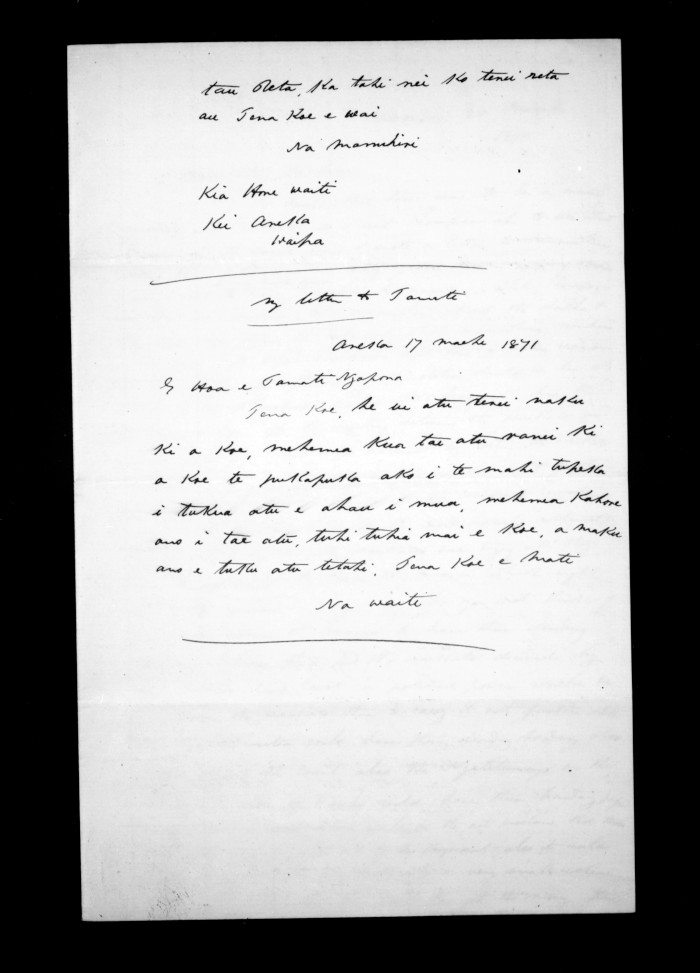 tau Reta, Ka tahi nei ko tenei reta
au Tena Koe e wai
Na Manuhiri
Kia Hone waiti
Kei Aneka
Waipa
my letter to Tamati
Aneka 17 maehe 1871
E Hoa e Tamati Ngapona
Tena Koe, he ui atu tenei naku
Ki a Koe, mehemea Kua tae atu ranei Ki
a Koe te pukapuka ako i te mahi tupeka
i tukua atu e ahau i mua, mehemea Kahore
ano i tae atu, tuhi tuhia mai e Koe, a maku
ano e tuku atu tetahi. Tena Koe e Mati
Na waiti